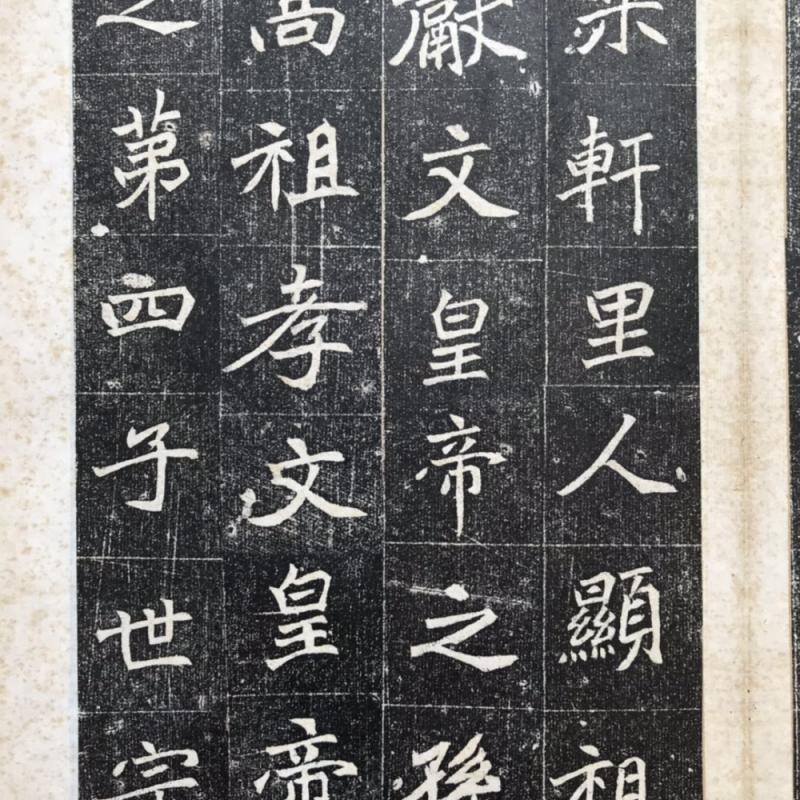 軒里人顯祖
獻文皇帝之孫
高祖孝文皇帝
之第四子世宗